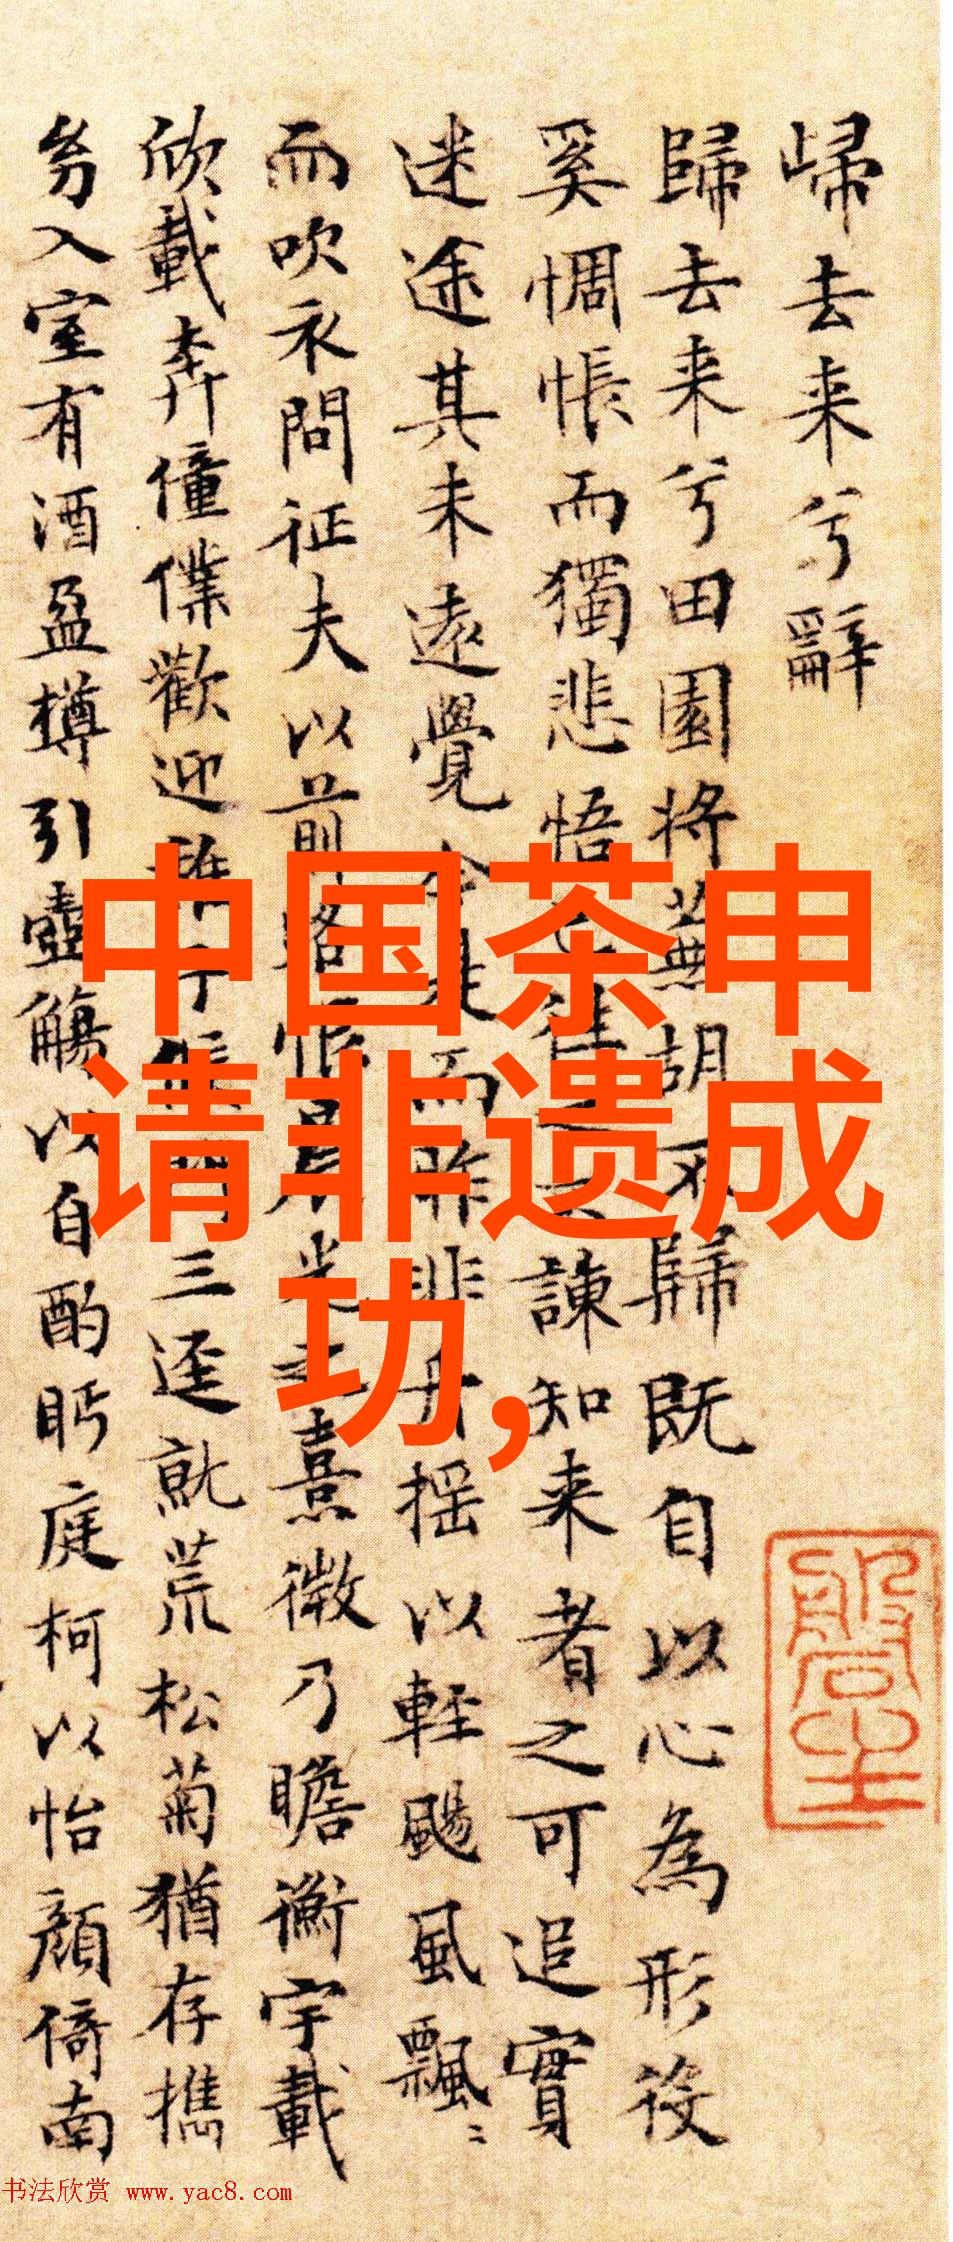 歸去来兮辭
歸去来兮田園将蕪胡不歸既自以心為形役
奚惆悵而獨悲悟已往之不諫知来者之可追實
迷途其未遠覺今是而昨非舟揺以輕颺風飄〻
而吹衣問征夫以前路恨晨光之熹微乃瞻衡宇載
欣載奔僮僕歡迎稚子候門三逕就荒松菊猶存攜
幼入室有酒盈樽引壺觴以自酌眄庭柯以怡顏倚南
中国茶申
请非遗成
功,
书法欣赏 www.yac8.com